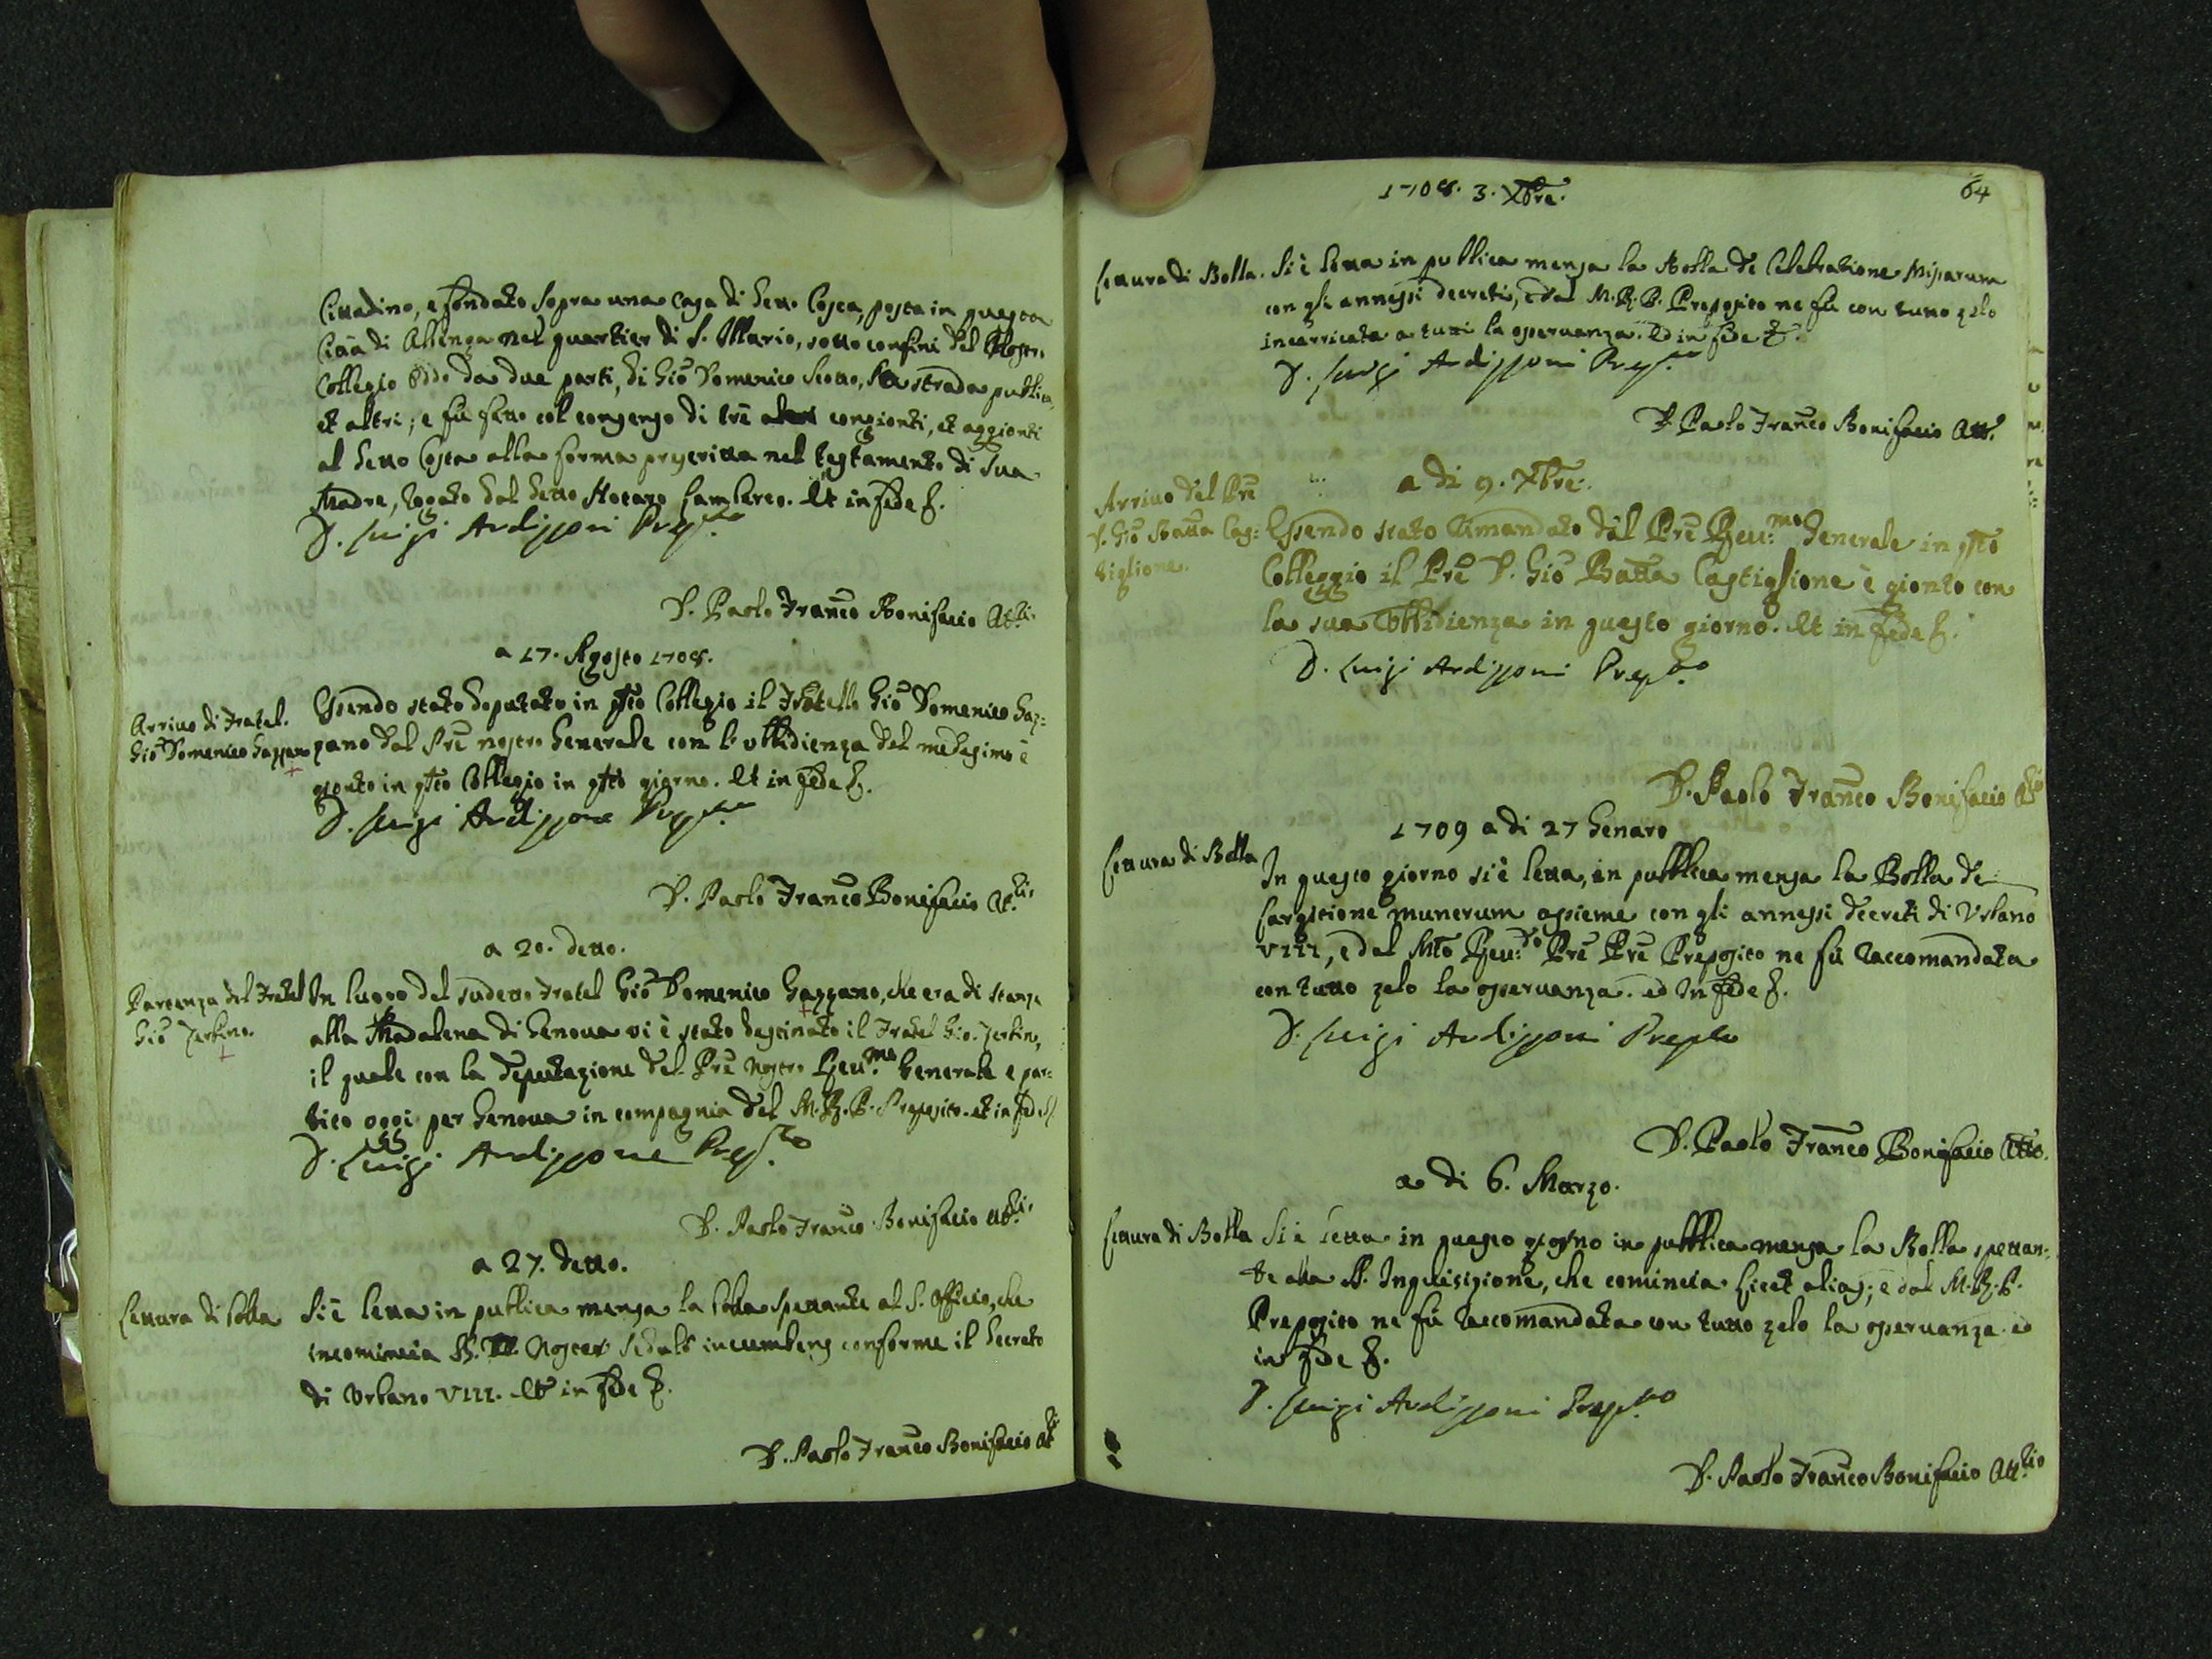 Cittadino, e fondato sopra una casa di detto Costa, posta in questa
Città di Albenga nel quartier di S. Illario, sotto confini del nostro
Collegio da due parti, di Gio Domenico Scotto, la strada publica,
et altri; e fù fatto col consenso di trè congionti, et aggionti
al detto Costa alla forma prescritta nel testamento di sua
Madre, rogato dal detto Notaro Lamberti. Et in fede &.
D. Luigi Ardizzoni Prep.to
D. Paolo Franco Bonifacio Att.rio
a 17. Agosto 1708.
Arrivo di Fratel.
Gio Domenico Gazzano
Essendo stato deputato in qsto Collegio il Fratello Gio Domenico Gaz=
zano dal Pre nostro Generale con l'ubbidienza del medesimo è
gionto in qsto Collegio in qsto giorno. Et in fede &.
D. Luigi Ardizzone Prep.to
D. Paolo Franco Bonifacio At.rio
a 20. detto.
Partenza del Fratel
Gio Zerbino.
In luogo del sudetto Fratel Gio Domenico Gazzano, che era di stanza
alla Madalena di Genova vi è stato destinato il Fratel Gio. Zerbino,
il quale con la deputazione del Pre nostro Reu.mo Generale e par=
tito oggi per Genova in compagnia del M.R.P. Preposito. et in fede &
D. Luigi Ardizzone Prep.to
D. Paolo Franco Bonifacio Att.rio
a 27. detto.
Lettura di bolla
Si è letta in publica mensa la bolla spettante al S. Officio, che
incomincia Noster sedulò incumbens conforme il decreto
di Urbano VIII. Et in fede &.
D. Paolo Franco Bonifacio At.rio
1708. 3. Xbre.
64
Lettura di Bolla.
Si è letta in publica mensa la Bolla de Celebratione Missarum
con gli annessi decreti, e dal M.R.P. Preposito ne fù con tutto zelo
incarricata a tutti la osservanza. Ed in fede &.
D. Luigi Ardizzoni Prep.to
D. Paolo Franco Bonifacio Att.o
a di 9. Xbre.
Arrivo del Pre
D. Gio Batta Cas=
tiglione.
Essendo stato Cmandato dal Pre Reu.mo Generale in qsto
Colleggio il Pre D. Gio Batta Castiglione è gionto con
la sua Obbidienza in questo giorno. Et in fede &.
D. Luigi Ardizzoni Prep.to
D. Paolo Franco Bonifacio Att.rio
1709 a di 27 Genaro
Lettura di Bolla
In questo giorno si è letta, in pubblica mensa la Bolla de
largitione munerum assieme con gli annessi decreti di Urbano
VIII, e dal Mto Reu.do Pre Pre Preposito ne fù raccomandata
con tutto zelo la osservanza. ed In fede &.
D. Luigi Ardizzoni Prepto
D. Paolo Franco Bonifacio Atto.
a di 6. Marzo.
Lettura di Bolla
Si è letta in questo giorno in pubblica mensa la Bolla spettan=
te alla S. Inquisizione, che comincia Licet alias; e dal M.R.P.
Preposito ne fù raccomandata con tutto zelo la osservanza. ed
in fede &.
D. Luigi Ardizzoni Prep.to
D. Paolo Franco Bonifacio Att.rio